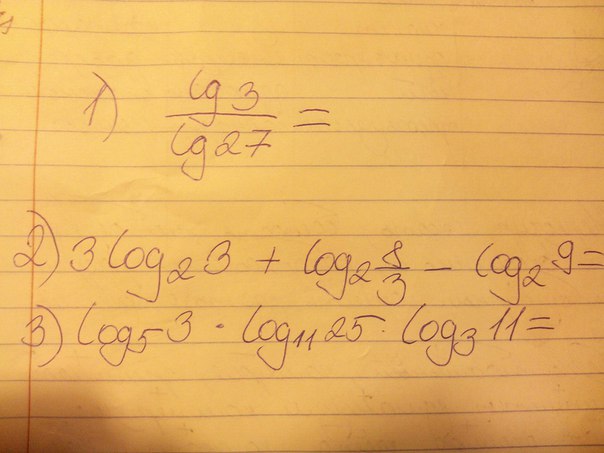 1) lg 3 / lg 27 =
2) 3 log₂ 3 + log₂ 8/3 − log₂ 9 =
3) log₅ 3 · log₁₁ 25 · log₃ 11 =